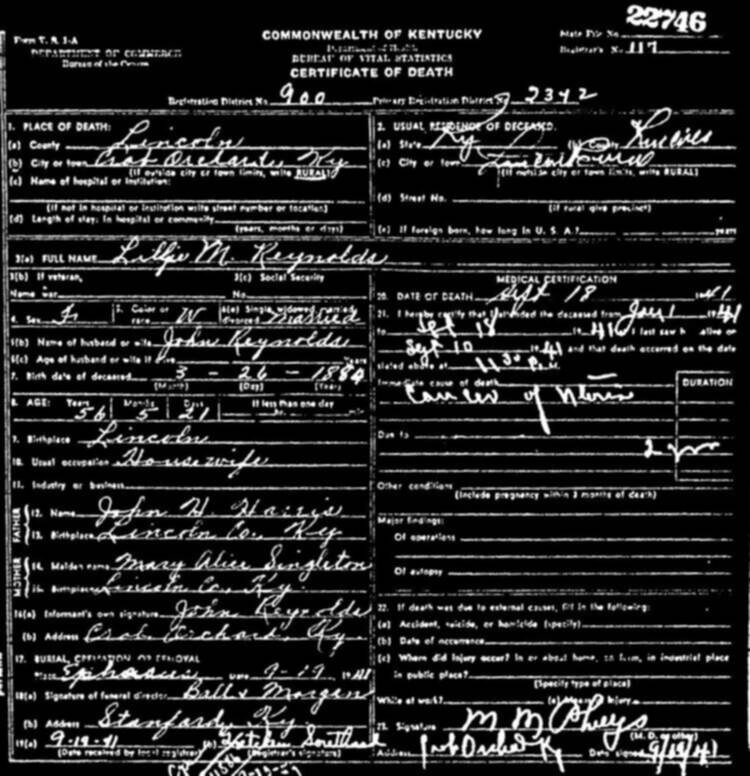 22746
Form V. S. 1-A
COMMONWEALTH OF KENTUCKY
State File No.
DEPARTMENT OF COMMERCE
Department of Health
Registrar's No. 117
Bureau of the Census
BUREAU OF VITAL STATISTICS
CERTIFICATE OF DEATH
Registration District No. 900 Primary Registration District No. 2342
1. PLACE OF DEATH:
(a) County Lincoln
(b) City or town Crab Orchard, Ky
(If outside city or town limits, write RURAL)
(c) Name of hospital or institution:
(If not in hospital or institution write street number or location)
(d) Length of stay: In hospital or community
(years, months or days)
2. USUAL RESIDENCE OF DECEASED:
(a) State Ky (b) County
(c) City or town
(If outside city or town limits, write RURAL)
(d) Street No.
(If rural give precinct)
(e) If foreign born, how long in U. S. A.? years
3(a) FULL NAME Lillie M. Reynolds
3(b) If veteran, 3(c) Social Security
Name war No.
4. Sex F 5. Color or race W 6(a) Single, widowed, married, divorced Married
6(b) Name of husband or wife John Reynolds
6(c) Age of husband or wife if alive Years
7. Birth date of deceased 3 - 26 - 1884
(Month) (Day) (Year)
8. AGE: Years Months Days If less than one day
56 5 21 hr. min.
9. Birthplace Lincoln
10. Usual occupation Housewife
11. Industry or business
FATHER
12. Name John H. Harris
13. Birthplace Lincoln Co., Ky
MOTHER
14. Maiden name Mary Alice Singleton
15. Birthplace Lincoln Co., Ky.
16(a) Informant's own signature John Reynolds
(b) Address Crab Orchard, Ky.
17. BURIAL, CREMATION OR REMOVAL
Place Ephasus Date 9-19 1941
18(a) Signature of funeral director Ball & Morgan
(b) Address Stanford, Ky.
19(a) 9-19-41 (b)
(Date received by local registrar) (Registrar's signature)
MEDICAL CERTIFICATION
20. DATE OF DEATH Sept 18 1941
21. I hereby certify that I attended the deceased from Jany 1 1941
to Sept 18 1941 I last saw h alive on
Sept 10 1941 and that death occurred on the date
stated above at 11 30 P. M.
Immediate cause of death DURATION
Cancer of Uterus
Due to
2 yrs
Other conditions
(Include pregnancy within 3 months of death)
Major findings:
Of operations
Of autopsy
22. If death was due to external causes, fill in the following:
(a) Accident, suicide, or homicide (specify)
(b) Date of occurrence
(c) Where did injury occur? In or about home, on farm, in industrial place
in public place?
(Specify type of place)
While at work? (e) Means of injury.
23. Signature M M Phelps
(M. D. or other)
Address Crab Orchard Ky Date signed 9/19/41